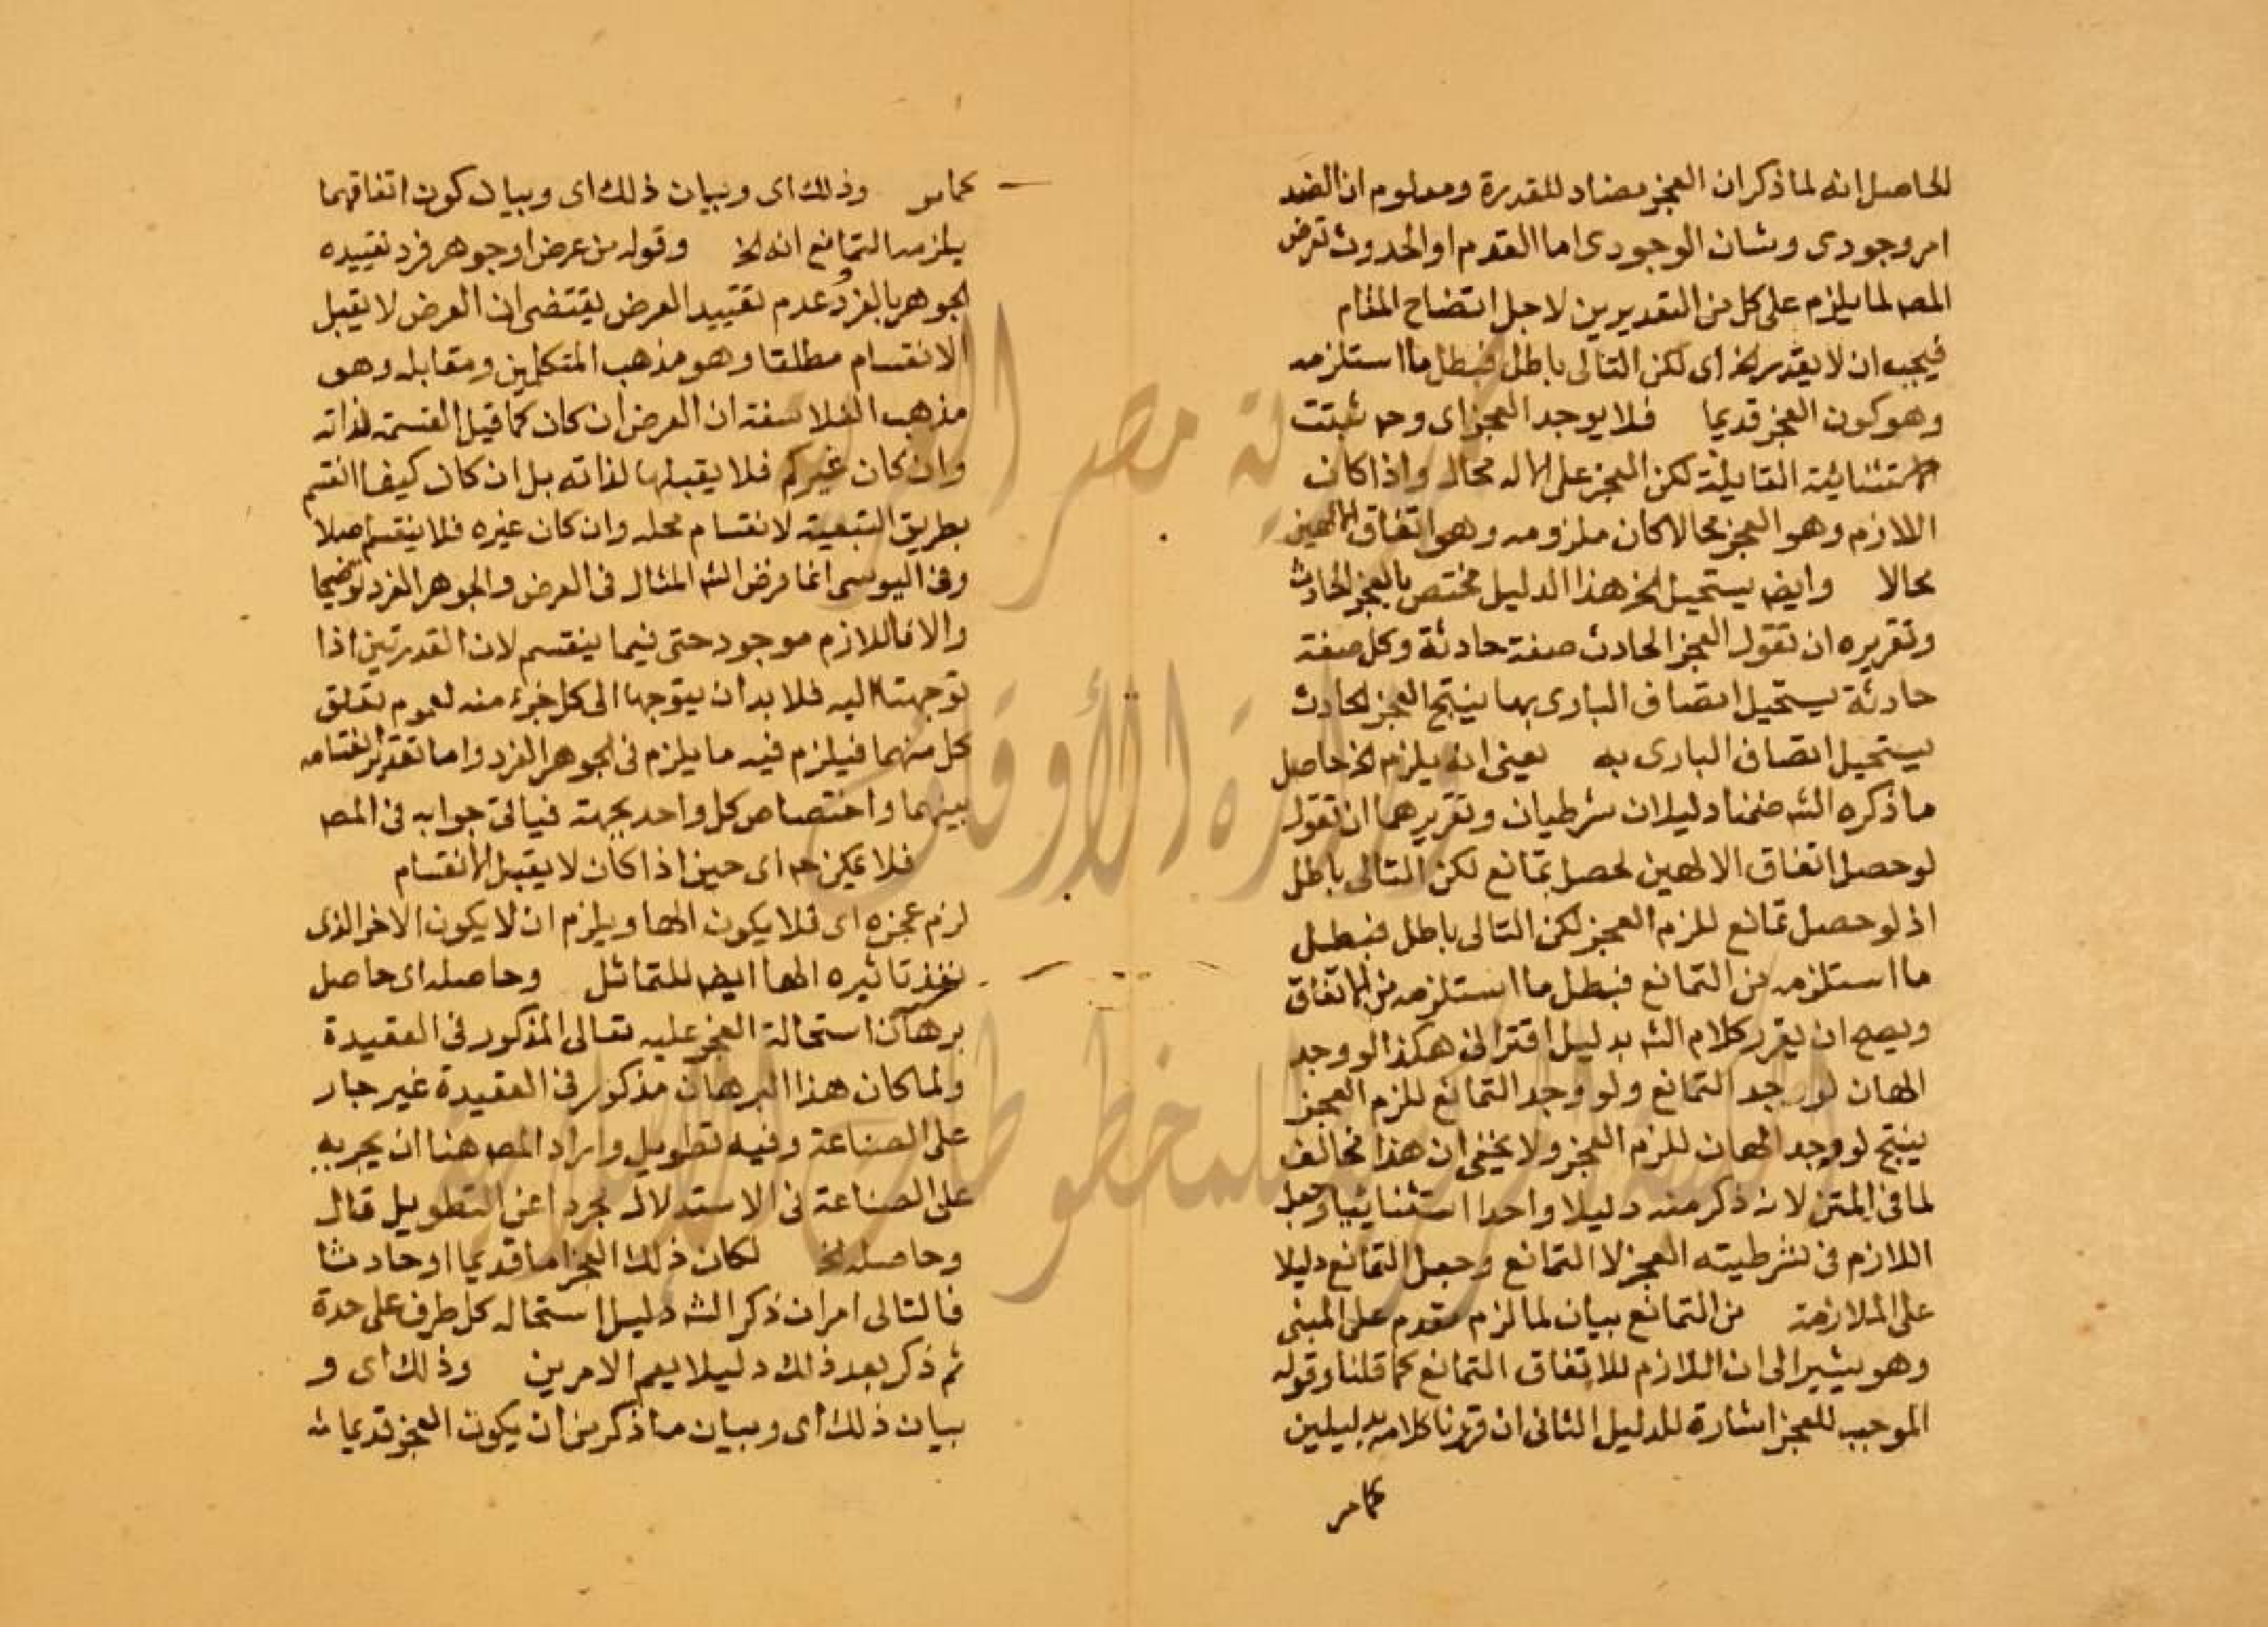 الحاصل انه لما ذكر ان العجز مضاد للقدرة ومعلوم ان الضد
امر وجودى وشان الوجودى اما القدم او الحدوث تعرض
المصـ لما يلزم على كل من التقديرين لاجل اتضاح المقام
فيجب ان لا يقدر الخ اى لكن التالى باطل فبطل ما استلزمه
وهو كون العجز قديما فلا يوجد العجز اى وحـ ثبتت
الاستثنائية القايلة لكن العجز على الاله محال واذا كان
اللازم وهو العجز محالا كان ملزومه وهو اتفاق الالهين
محالا وايضـ يستحيل الخ هذا الدليل مختص بالعجز الحادث
وتقريره ان تقول العجز الحادث صفة حادثة وكل صفة
حادثة يستحيل اتصاف البارى بها ينتج العجز الحادث
يستحيل اتصاف البارى به يعنى انه يلزم الخ حاصل
ما ذكره الشـ ضمنا دليلان شرطيان وتقريرهما ان تقول
لو حصل اتفاق الالهين لحصل تمانع لكن التالى باطل
اذ لو حصل تمانع للزم العجز لكن التالى باطل فبطل
ما استلزمه من التمانع فبطل ما استلزمه من الاتفاق
ويصح ان يقرر كلام الشـ بدليل اقترانى هكذا لو وجد
الهان لوجد التمانع ولو وجد التمانع للزم العجز
ينتج لو وجد الهان للزم العجز ولا يخفى ان هذا مخالف
لما فى المتن لانه ذكر منه دليلا واحدا استثنايئا وجعل
اللازم فى شرطيته العجز لا التمانع وجعل التمانع دليلا
على الملازمة من التمانع بيان لما لزم مقدم على المبنى
وهو يشير الى ان اللازم للاتفاق التمانع كما قلنا وقوله
الموجب للعجز اشارة للدليل الثانى ان قررنا كلامه بدليلين
كما مر
كما مر وذلك اى وبيان ذلك اى وبيان كون اتفاقهما
يلزمه التمانع انه الخ وقوله من عرض او جوهر فرد تقييده
الجوهر بالفرد وعدم تقييد العرض يقتضى ان العرض لا يقبل
الانقسام مطلقا وهو مذهب المتكلمين ومقابله وهو
مذهب الفلاسفة ان العرض ان كان كما قيل القسمة لذاته
وان كان غير كم فلا يقبلها لذاته بل ان كان كيفا انقسم
بطريق التبعية لانقسام محله وان كان غيره فلا ينقسم اصلا
وفى اليوسى انما فرض الشـ المثال فى العرض والجوهر الفرد توضيحا
والا فاللازم موجود حتى فيما ينقسم لان القدرتين اذا
توجهتا اليه فلا بد ان يتوجها الى كل جزء منه لعموم تعلق
كل منهما فيلزم فيه ما يلزم فى الجوهر الفرد واما تقدير انقسامه
بينهما واختصاص كل واحد بجهة فياتى جوابه فى المصـ
فلا يمكن حـ اى حين اذا كان لا يقبل الانقسام
لزم عجزه اى فلا يكون الها ويلزم ان لا يكون الاخر الذى
نفذ تاثيره الها ايضـ للتماثل وحاصله اى حاصل
برهان استحالة العجز عليه تعالى المذكور فى العقيدة
ولما كان هذا البرهان مذكور فى العقيدة غير جار
على الصناعة وفيه تطويل واراد المصـ هنا ان يجريه
على الصناعة فى الاستدلال مجردا عن التطويل قال
وحاصله الخ لكان ذلك العجز اما قديما او حادثا
فالتالى امران ذكر الشـ دليل استحالة كل طرف على حدة
ثم ذكر بعد ذلك دليلا يعم الامرين وذلك اى و
بيان ذلك اى وبيان ما ذكر من ان يكون العجز قديما